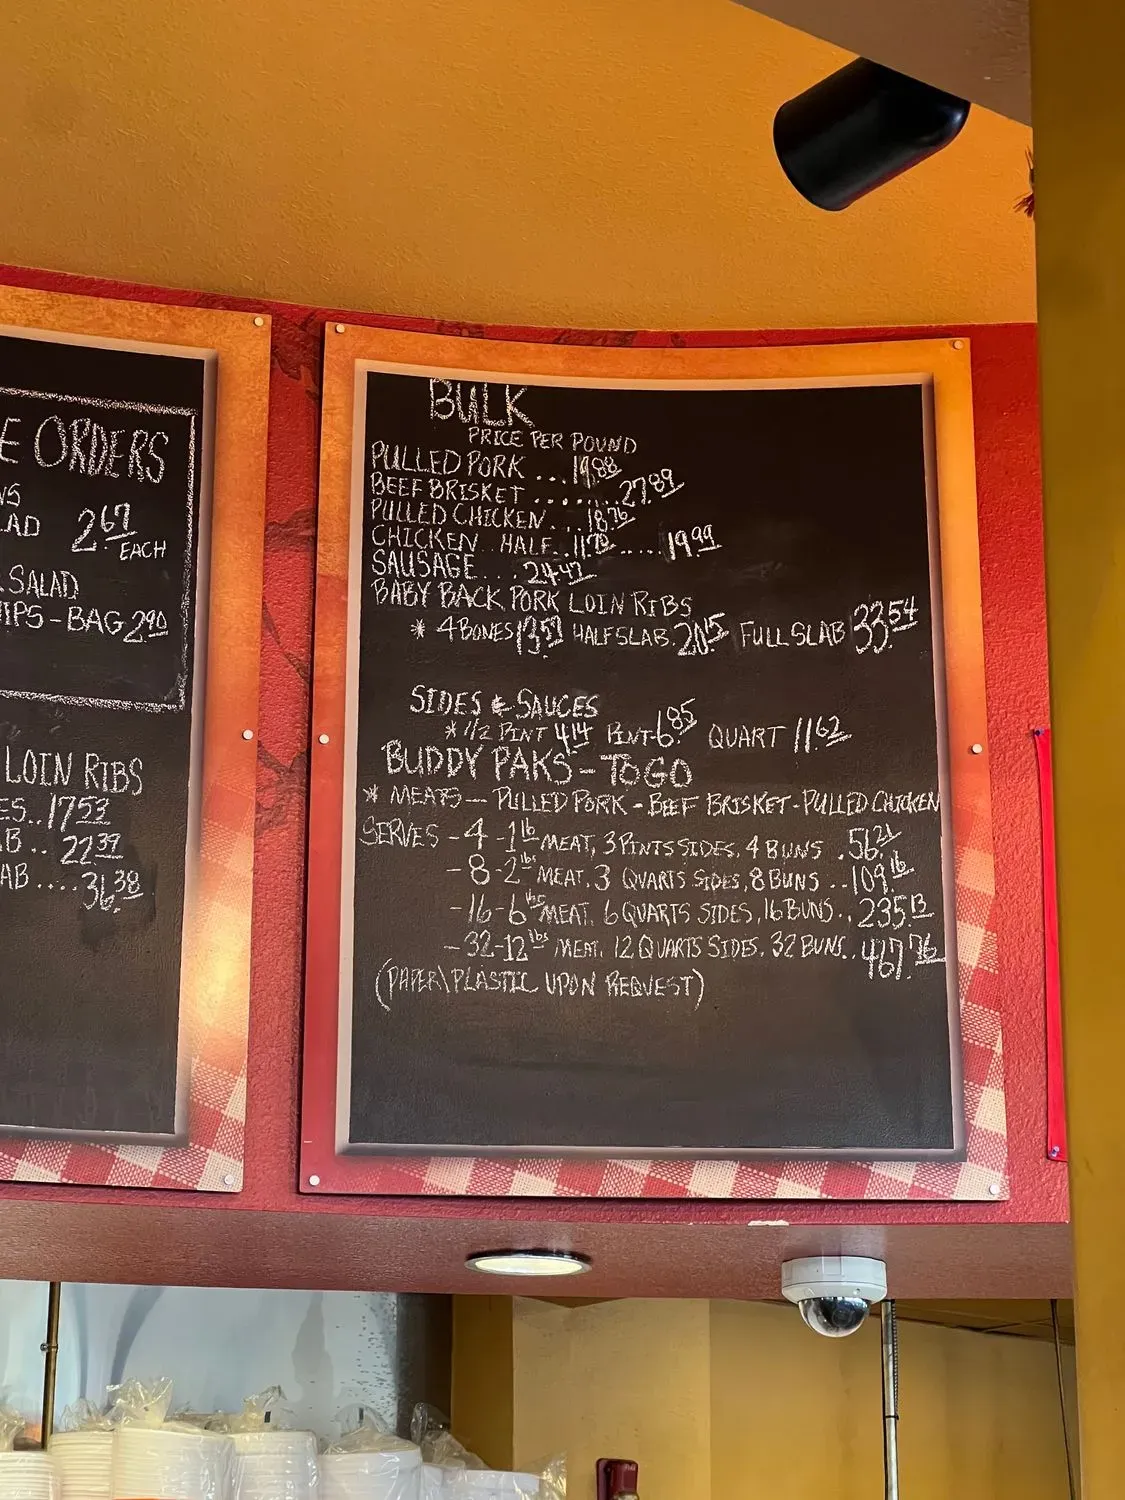 E ORDERS
NS
LAD 2.67
EACH
SALAD
HIPS - BAG 2.90
LOIN RIBS
ES.. 17.53
B.. 22.39
AB.... 36.38
BULK
PRICE PER POUND
PULLED PORK ... 19.88
BEEF BRISKET ......... 27.89
PULLED CHICKEN ... 18.76
CHICKEN .. HALF .. 11.70 ..... 19.99
SAUSAGE ... 24.47
BABY BACK PORK LOIN RIBS
* 4 BONES 13.53 HALF SLAB. 20.15 FULL SLAB 33.54
SIDES & SAUCES
* 1/2 PINT 4.14 PINT- 6.85 QUART 11.62
BUDDY PAKS - TO GO
* MEATS -- PULLED PORK - BEEF BRISKET - PULLED CHICKEN
SERVES - 4 - 1 lb MEAT, 3 PINTS SIDES, 4 BUNS . 56.21
- 8 - 2 lbs MEAT, 3 QUARTS SIDES, 8 BUNS .. 109.16
- 16 - 6 lbs MEAT, 6 QUARTS SIDES, 16 BUNS.. 235.13
- 32 - 12 lbs MEAT, 12 QUARTS SIDES, 32 BUNS.. 467.76
(PAPER\PLASTIC UPON REQUEST)